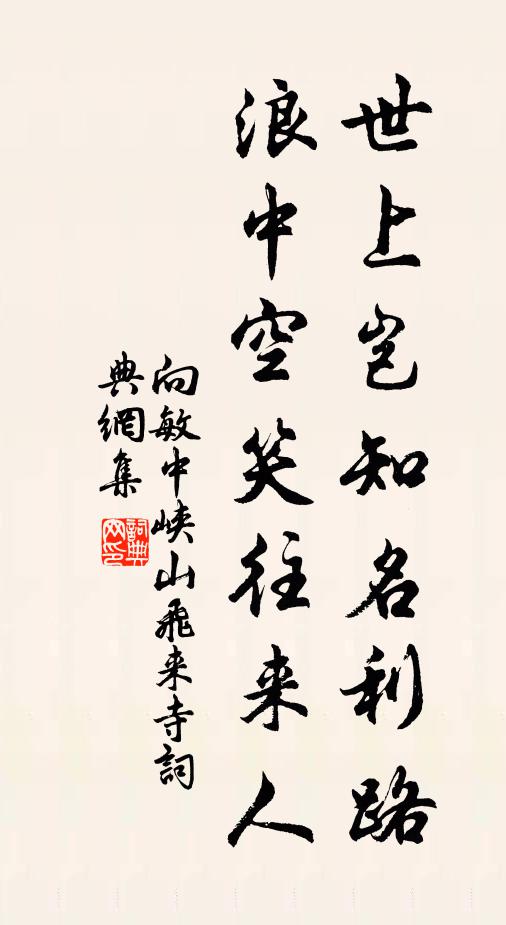 世上岂知名利路
浪中空笑往来人
向敏中峡山飛来寺詞
典網集
詞典網印